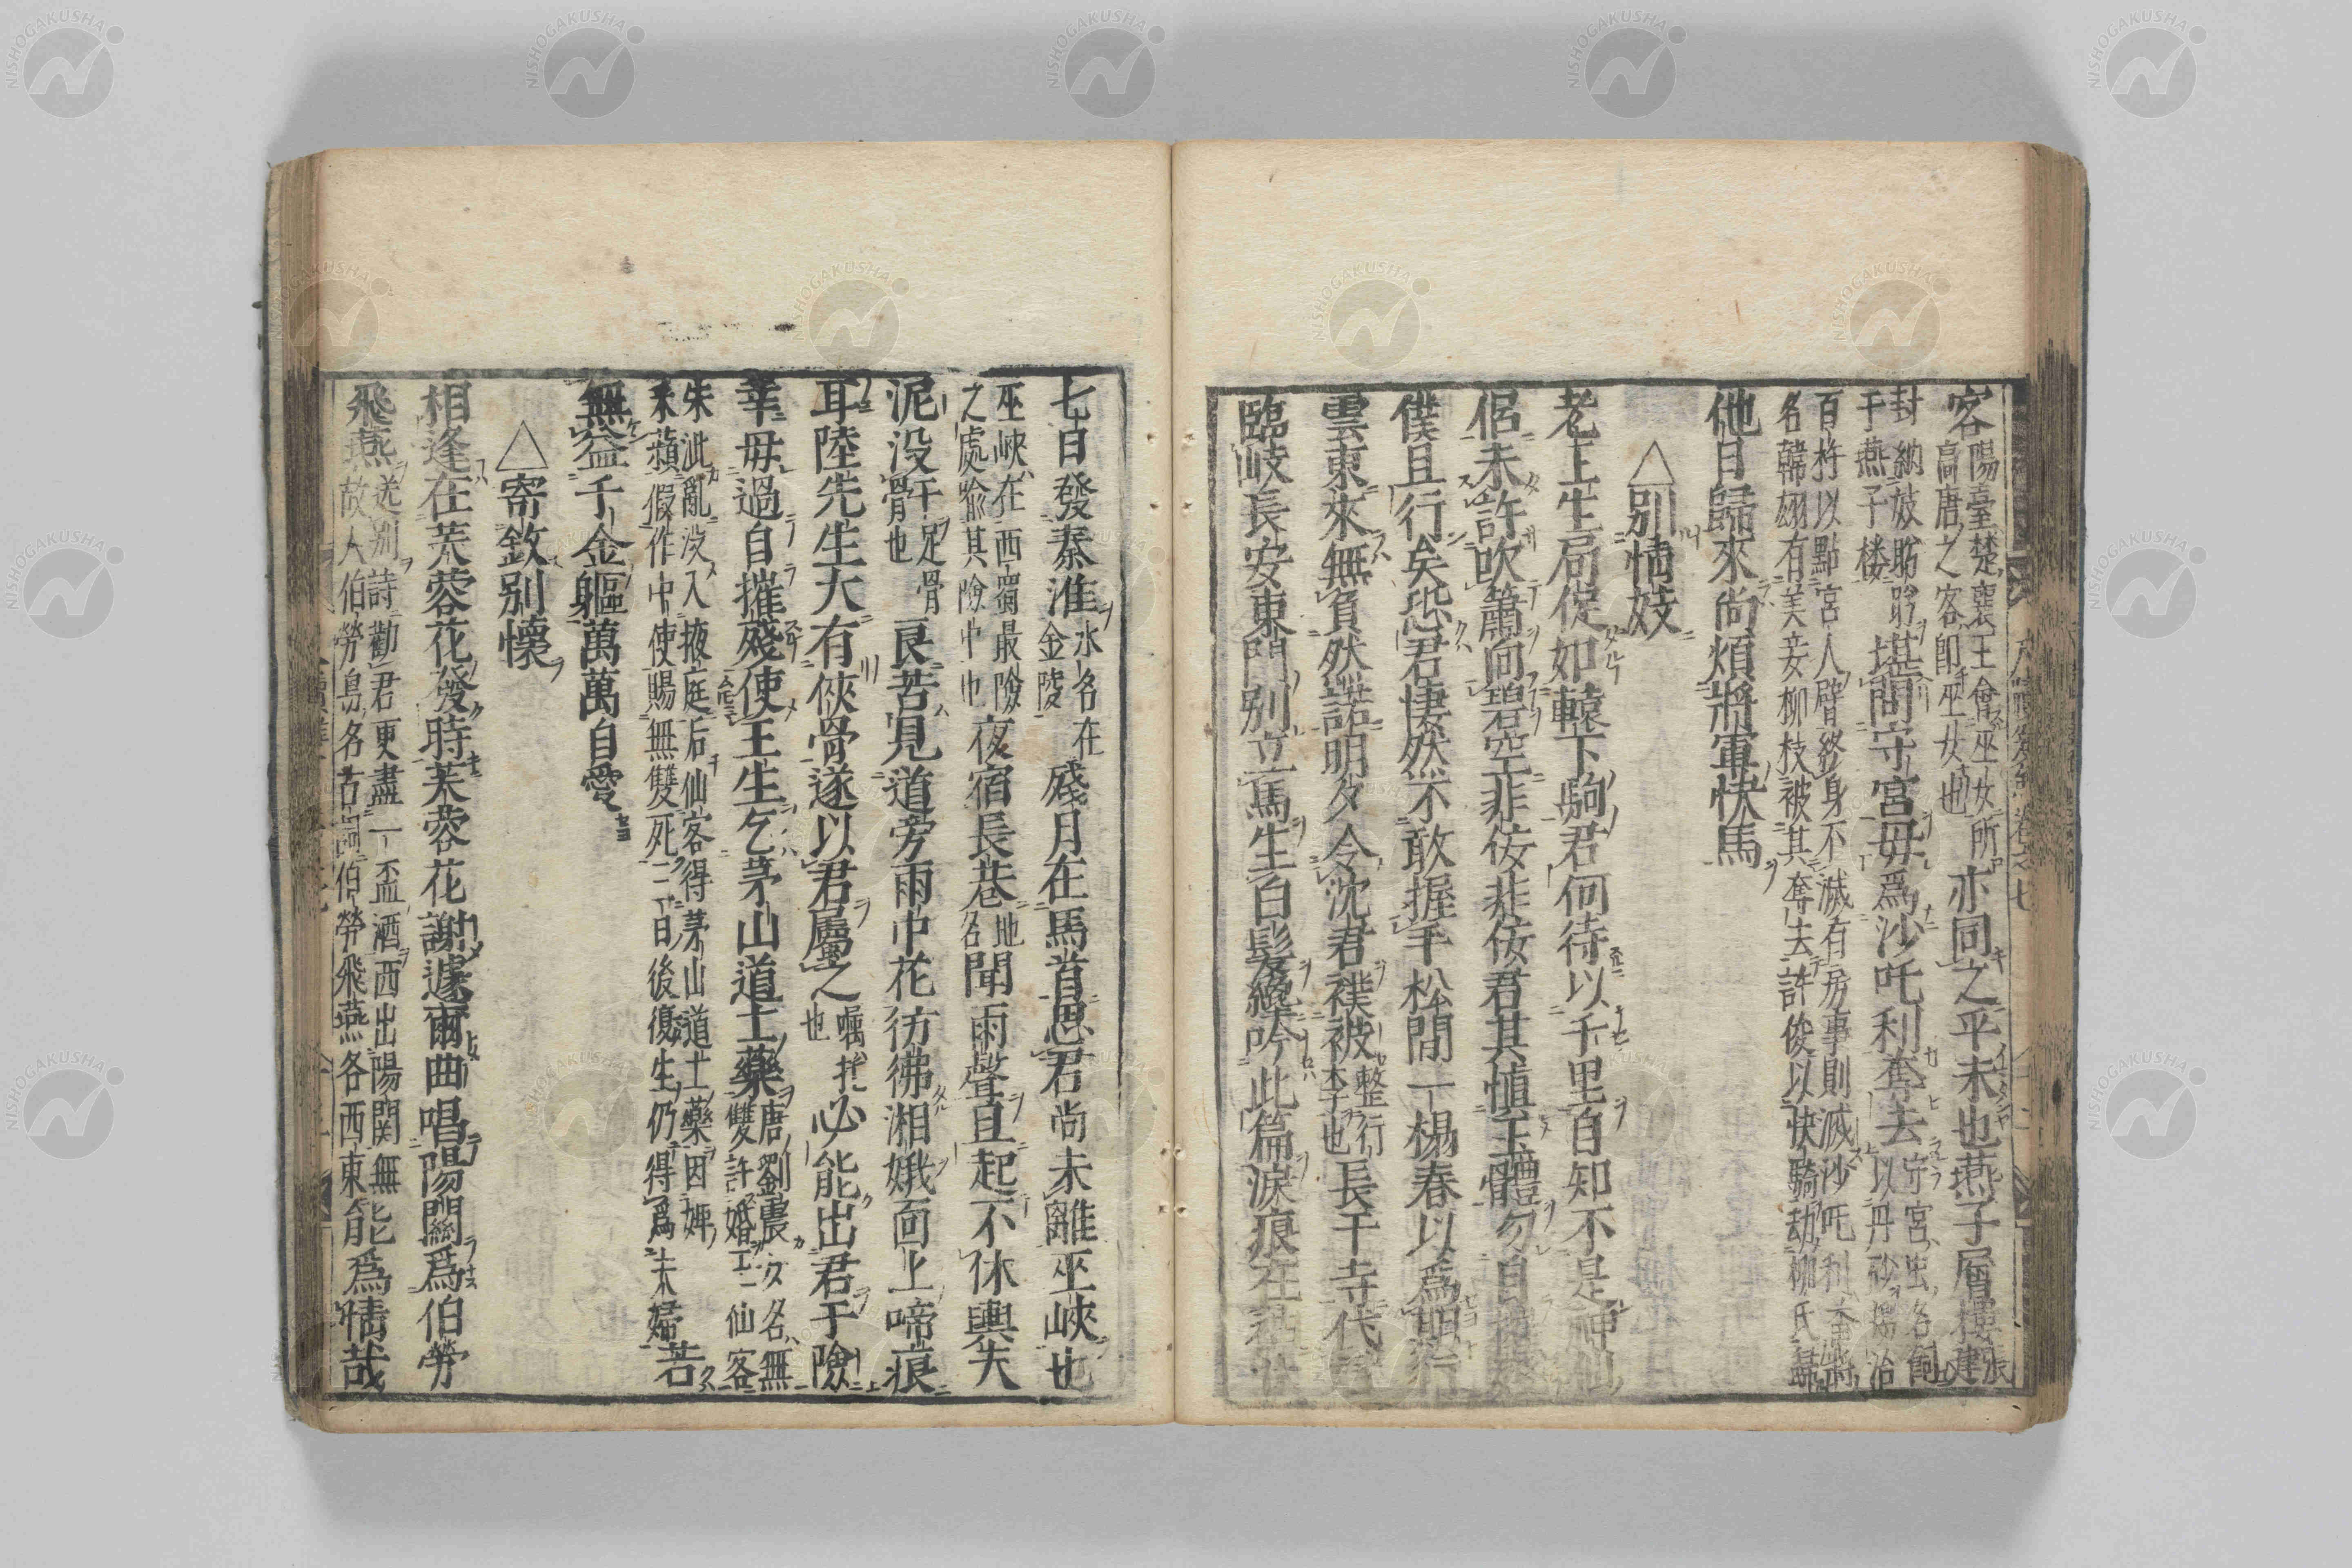 客陽臺楚襄王會巫女所高唐之客即巫女也亦同之乎未也燕子層樓建張
封納妓盼盼于燕子楼堪問守宮毋爲沙吒利奪去守宮出名飼以丹砂搗治
百杵以點宮人臂終身不滅有房事則滅沙吒利番將名韓翃有美妾柳枝被其奪去許俊以快騎劫柳氏歸
他日歸來尚煩將軍快馬
△別情妓
老工生局促如轅下駒君何待以千里自知不是神仙
侶未許吹簫向碧空非佞非佞君其慎玉體勿自
僕且行矣恐君悽然不敢握手松間一榻春以爲期行
雲東來無負然諾明夕令沈君襆被整行李也長干寺代
臨岐長安東門別立馬生白髮纔吟此篇淚痕在
七日發秦淮水名在金陵殘月在馬首思君尚未離巫峽也
巫峽在西蜀最險之處喻其險中也夜宿長巷地名聞雨聲且起不休輿夫
泥没骨干足骨也良苦見道旁雨中花彷彿湘娥面上啼痕
耳陸先生大有俠骨遂以君屬之嘱托也必能出君于險
幸毋過自摧殘使王生乞茅山道士藥唐劉震女名無雙許婚王仙客
朱泚亂没入掖庭后仙客得茅山道士藥因婢采蘋假作中使賜無雙死三日後復生仍得爲夫婦若
無益千金軀萬萬自愛
△寄敘別懷
相逢在芙蓉花發時芙蓉花謝遽爾曲唱陽關爲伯勞
飛燕送別詩勸君更盡一盃酒西出陽関無故人伯勞鳥名古詞伯勞飛燕各西東能爲情哉
NISHOGAKUSHA